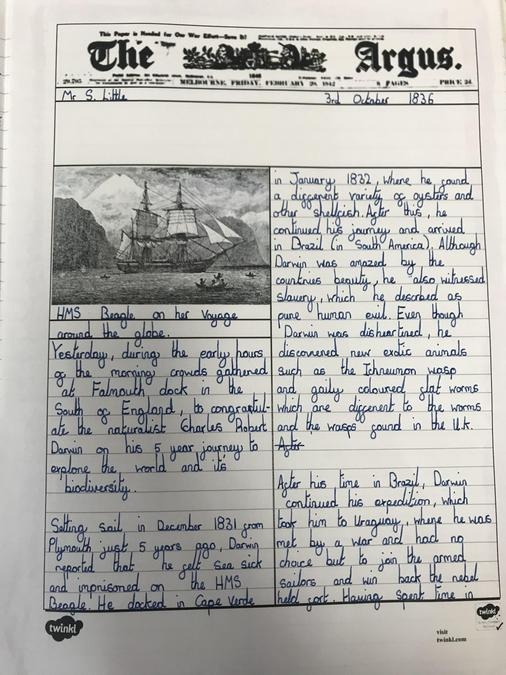 This Paper is Needed for Our War Effort—Save It!
The Argus.
MELBOURNE, FRIDAY, FEBRUARY 20, 1942
PAGES
PRICE 2d.
Mr S. Little
3rd October 1836
HMS Beagle on her Voyage
around the globe.
Yesterday, during the early hours
of the morning crowds gathered
at Falmouth dock in the
South of England, to congratul-
ate the naturalist Charles Robert
Darwin on his 5 year journey to
explore the world and its
biodiversity.
Setting sail in December 1831 from
Plymouth just 5 years ago, Darwin
reported that he felt sea sick
and imprisoned on the HMS
Beagle. He docked in Cape Verde
in January 1832, where he found
a different variety of oysters and
other shellfish. After this, he
continued his journey and arrived
in Brazil (in South America). Although
Darwin was amazed by the
countries beauty, he also witnessed
slavery, which he described as
pure human evil. Even though
Darwin was disheartened, he
discovered new exotic animals
such as the Ichneumon wasp
and gaily coloured flat worms
which are different to the worms
and the wasps found in the U.K.
After
After his time in Brazil, Darwin
continued his expedition, which
took him to Uraguay, where he was
met by a war and had no
choice but to join the armed
sailors and win back the rebel
held fort. Having spent time in
twinkl
visit
twinkl.com
twinkl